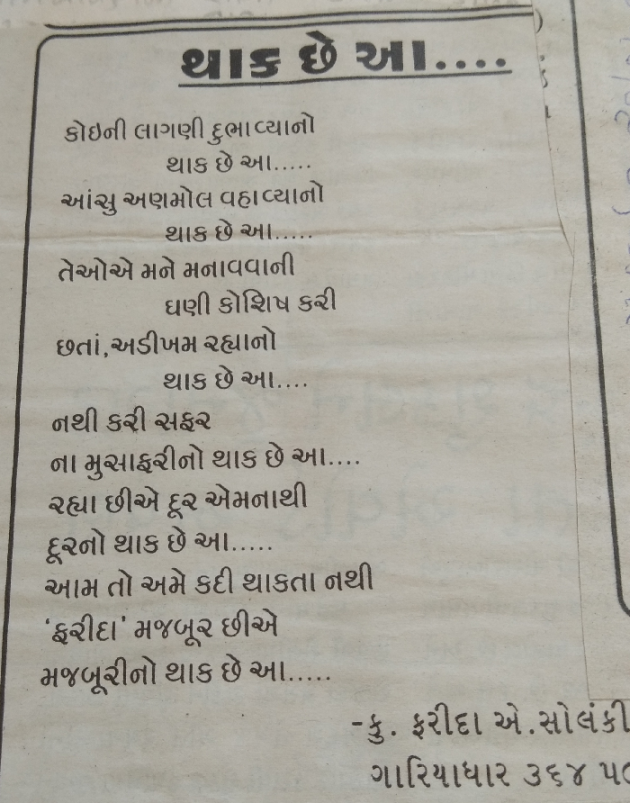 થાક છે આ....
કોઇની લાગણી દુભાવ્યાનો
થાક છે આ.....
આંસુ અણમોલ વહાવ્યાનો
થાક છે આ.....
તેઓએ મને મનાવવાની
ઘણી કોશિષ કરી
છતાં,અડીખમ રહ્યાનો
થાક છે આ....
નથી કરી સફર
ના મુસાફરીનો થાક છે આ....
રહ્યા છીએ દૂર એમનાથી
દૂરનો થાક છે આ.....
આમ તો અમે કદી થાકતા નથી
‘ફરીદા’ મજબૂર છીએ
મજબૂરીનો થાક છે આ.....
-કુ. ફરીદા એ.સોલંકી
ગારિયાધાર ૩૬૪ ૫૦